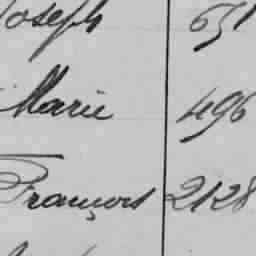 Joseph 651
Marie 496
François 2128